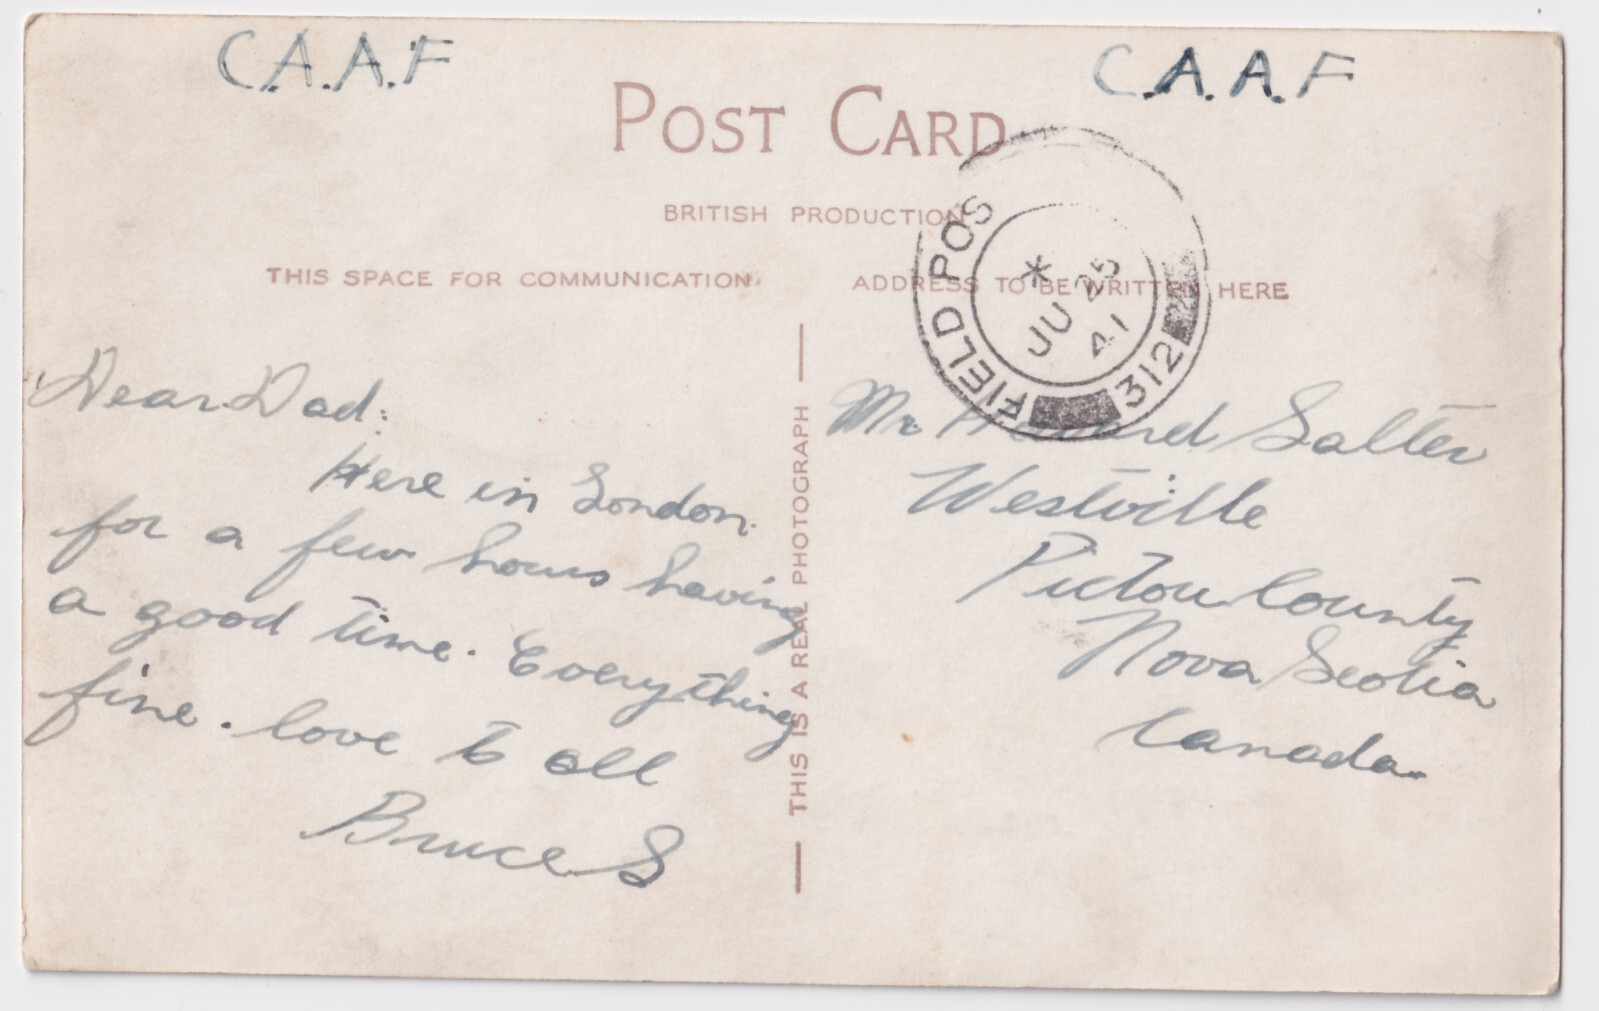 C.A.A.F
C.A.A.F
POST CARD
BRITISH PRODUCTION
THIS SPACE FOR COMMUNICATION
ADDRESS TO BE WRITTEN HERE
FIELD POS
312
*
JU 25
41
Dear Dad:
Here in London
for a few hours having
a good time. Everything
fine. love to all
Bruce S
THIS IS A REAL PHOTOGRAPH
Mr Salter
Westville
Pictou County
Nova Scotia
Canada